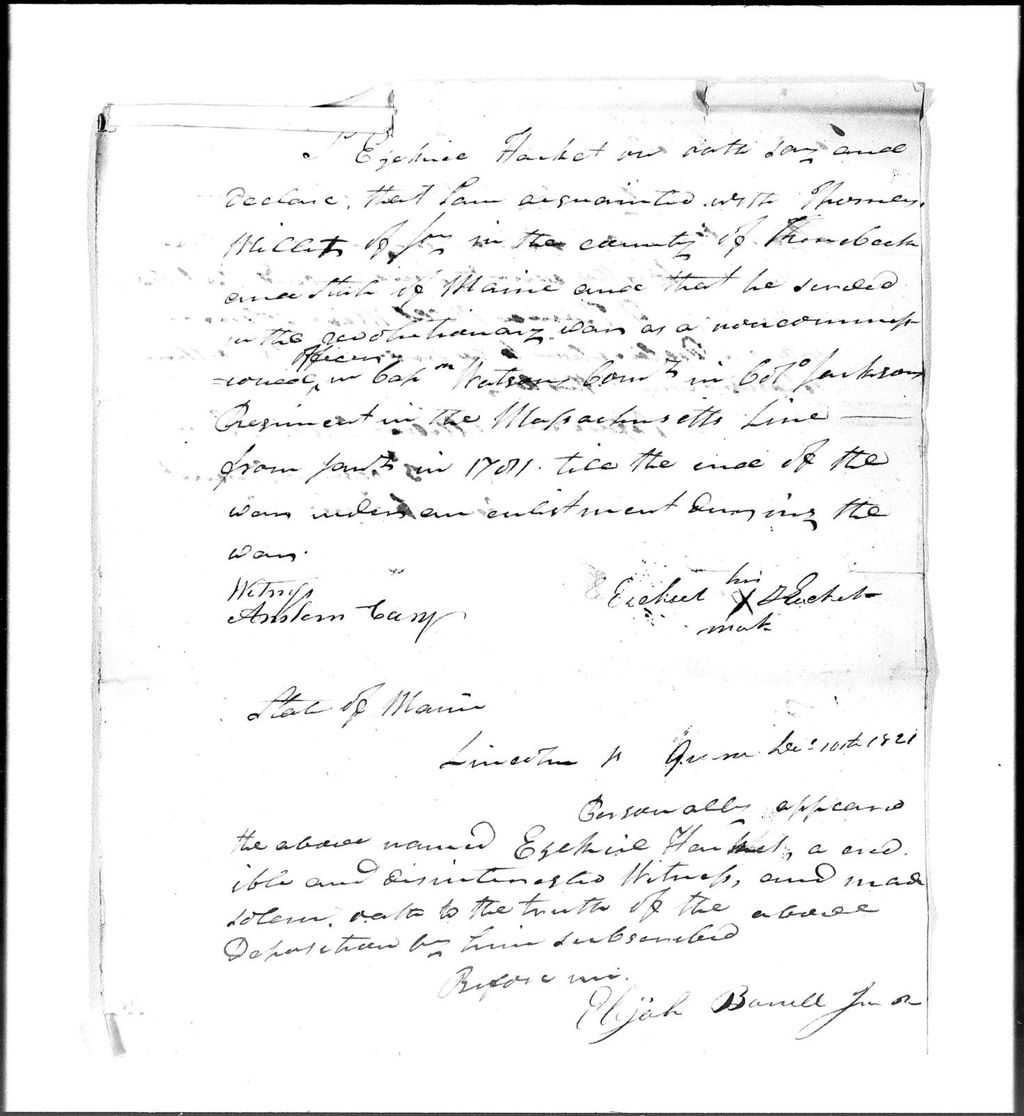 I Ezekiel Hacket on oath say and
Declare, that I am acquainted with Thomas
Millet of in the county of
and State of Maine and that he served
in the revolutionary war as a noncommiss
officer
ioned in Capn Watson Comy in Colo Jackson
Regiment in the Massachusetts Line —
from Jany in 1781. till the end of the
war under an enlistment During the
war.
Witness
his
Ezekiel X Hacket
mark
State of Maine
Lincoln ss Decr 10th 1821
Personally appeared
the above named Ezekiel Hacket, a cred
ible and disinterested Witness, and made
solem oath to the truth of the above
Deposition by him subscribed
Before me.
Elijah Barrell